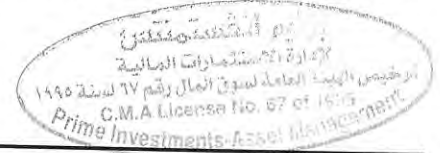 برايم إنفستمنتس
لإدارة الاستثمارات المالية
ترخيص الهيئة العامة لسوق المال رقم ٦٧ لسنة ١٩٩٥
C.M.A License No. 67 of
Prime Investments-Asset Management